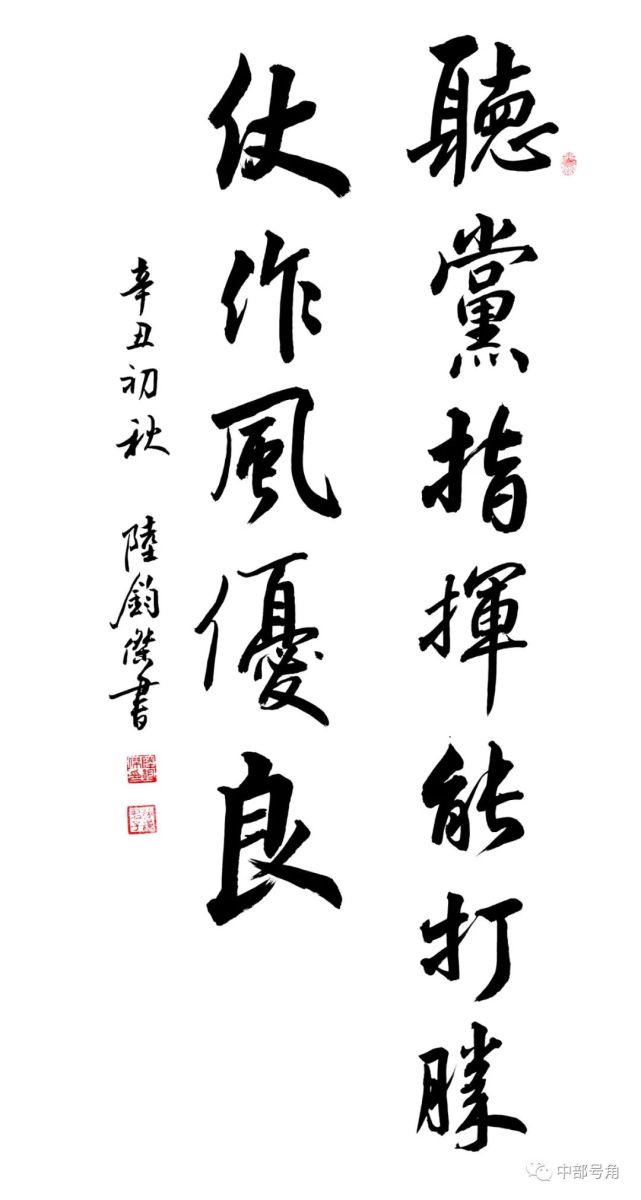 聽黨指揮能打勝
仗作風優良
辛丑初秋 陸鈞傑書
中部号角